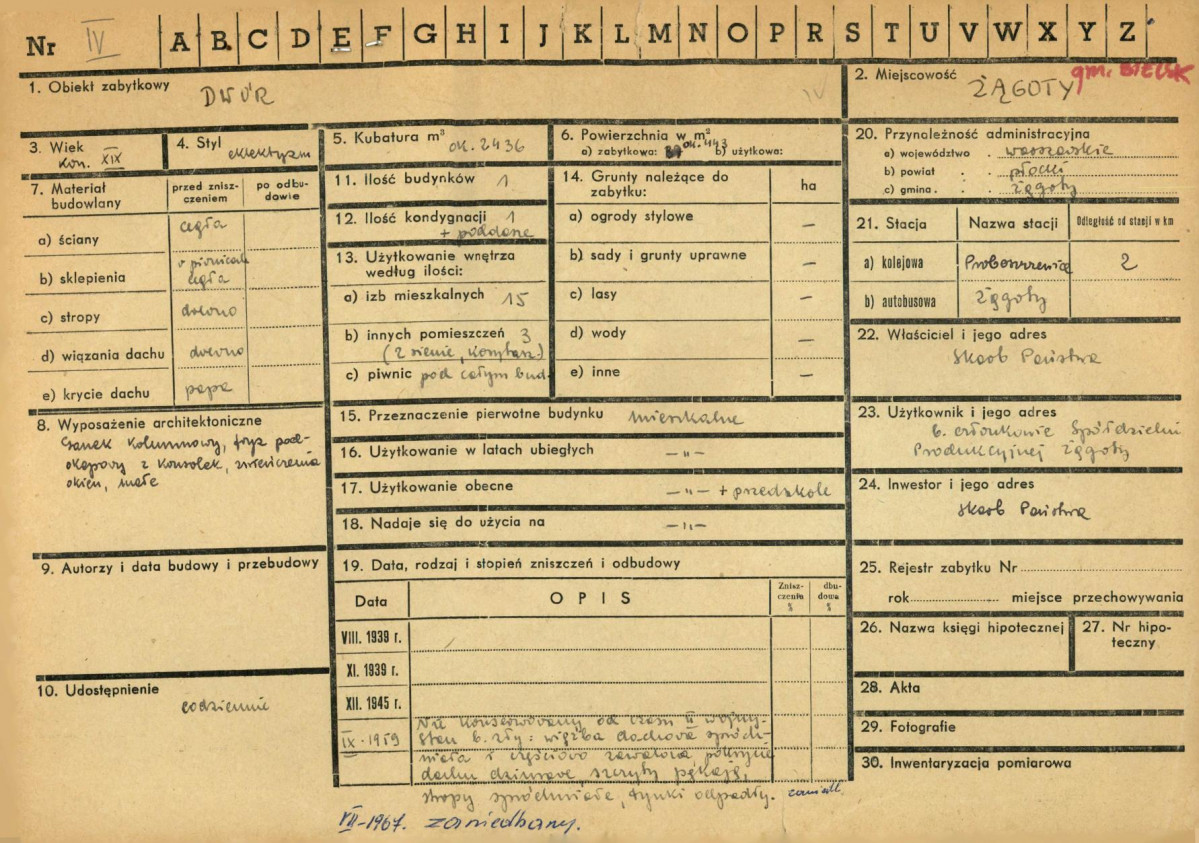 Nr IV A B C D E F G H I J K L M N O P R S T U V W X Y Z
1. Obiekt zabytkowy DWÓR IV
2. Miejscowość ŻĄGOTY gm. BIELSK
3. Wiek kon. XIX
4. Styl eklektyzm
5. Kubatura m³ ok. 2436
6. Powierzchnia w m²
a) zabytkowa: ok. 443 b) użytkowa:
7. Materiał budowlany
przed zniszczeniem
po odbudowie
a) ściany cegła
b) sklepienia w piwnicach cegła
c) stropy drewno
d) wiązania dachu drewno
e) krycie dachu papa
8. Wyposażenie architektoniczne
Ganek kolumnowy, fryz pod-
okapowy z konsolek, zwieńczenia
okien, małe
9. Autorzy i data budowy i przebudowy
10. Udostępnienie codziennie
11. Ilość budynków 1
12. Ilość kondygnacji 1
+ poddasze
13. Użytkowanie wnętrza
według ilości:
a) izb mieszkalnych 15
b) innych pomieszczeń 3
(2 sienie, korytarz)
c) piwnic pod całym bud.
14. Grunty należące do
zabytku:
ha
a) ogrody stylowe –
b) sady i grunty uprawne –
c) lasy –
d) wody –
e) inne –
15. Przeznaczenie pierwotne budynku mieszkalne
16. Użytkowanie w latach ubiegłych — „ —
17. Użytkowanie obecne — „ — + przedszkole
18. Nadaje się do użycia na — „ —
19. Data, rodzaj i stopień zniszczeń i odbudowy
Data OPIS Zniszczenia % dbudowa %
VIII. 1939 r.
XI. 1939 r.
XII. 1945 r.
IX. 1959
Nie konserwowany od czasu II wojny.
Stan b. zły: więźba dachowa spróch-
niała i częściowo zawalona, pokrycie
dachu dziurawe, szczyty pękają,
stropy spróchniałe, tynki odpadły.
VII-1967. zaniedbany.
20. Przynależność administracyjna
a) województwo warszawskie
b) powiat płocki
c) gmina Żągoty
21. Stacja Nazwa stacji Odległość od stacji w km
a) kolejowa Proboszczewice 2
b) autobusowa Żągoty
22. Właściciel i jego adres
Skarb Państwa
23. Użytkownik i jego adres
b. członkowie Spółdzielni
Produkcyjnej Żągoty
24. Inwestor i jego adres
Skarb Państwa
25. Rejestr zabytku Nr
rok miejsce przechowywania
26. Nazwa księgi hipotecznej
27. Nr hipo-
teczny
28. Akta
29. Fotografie
30. Inwentaryzacja pomiarowa